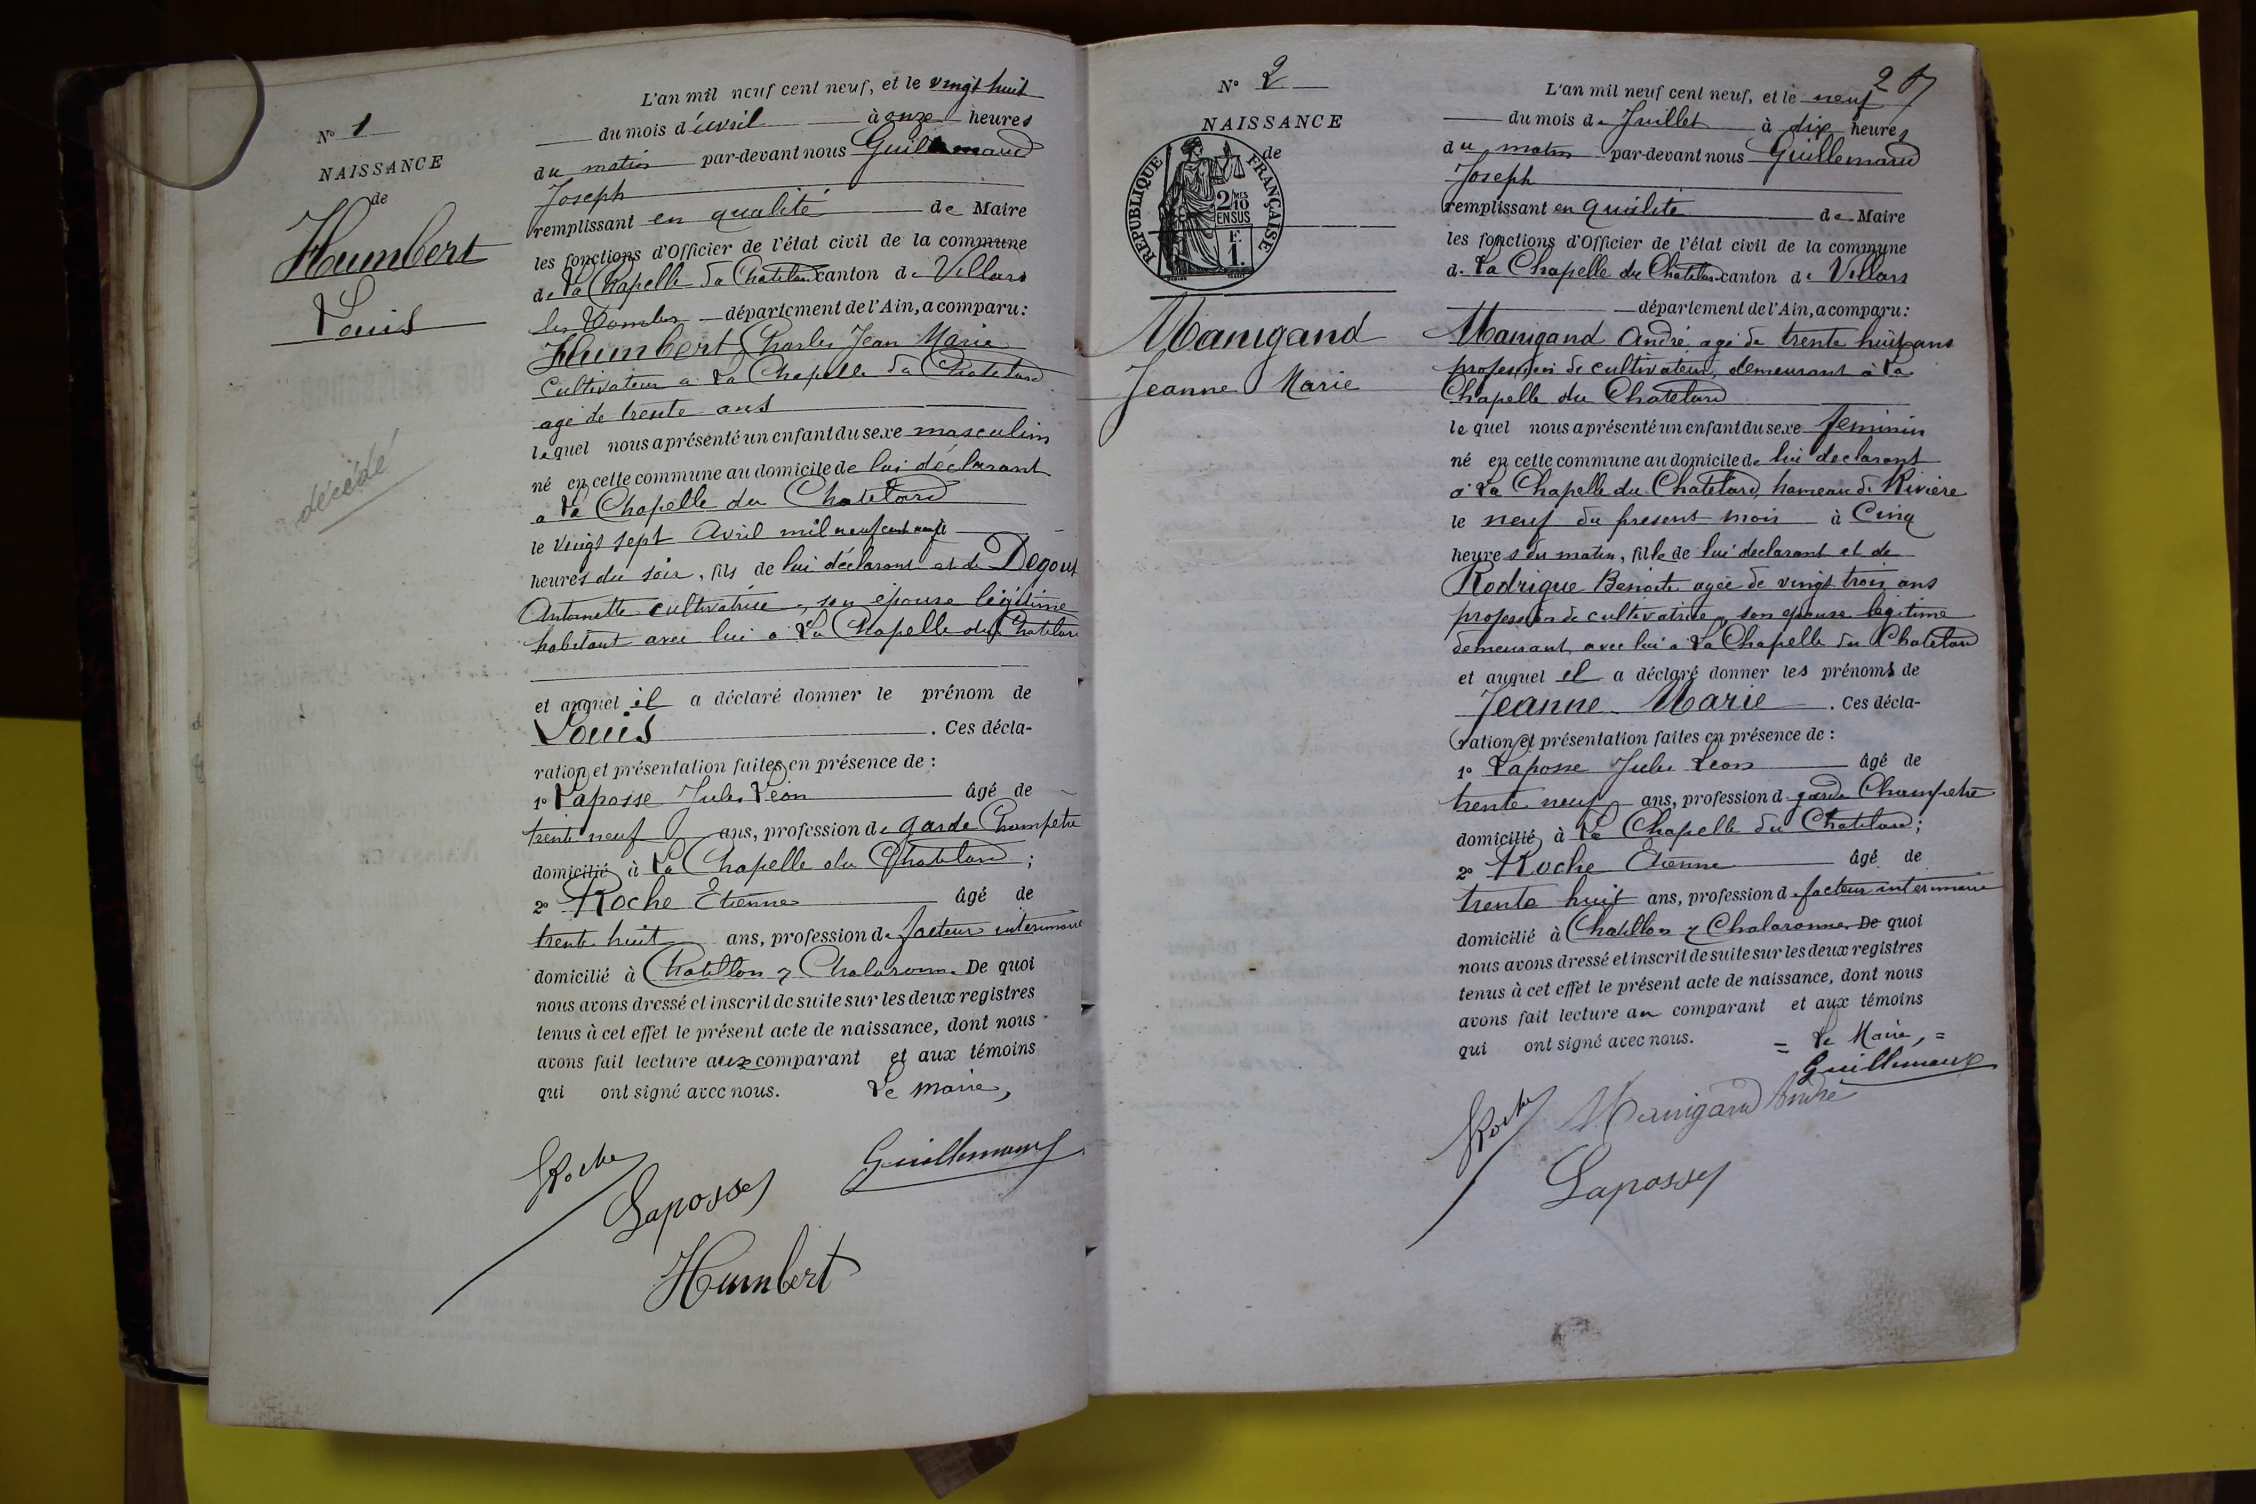 N° 1
NAISSANCE
de
Humbert
Louis
décédé
L'an mil neuf cent neuf, et le vingt huit
du mois d'avril à onze heures
du matin par-devant nous Guillemaud
Joseph
remplissant en qualité de Maire
les fonctions d'Officier de l'état civil de la commune
de La Chapelle du Chatelard canton de Villars
les Dombes département de l'Ain, a comparu:
Humbert Charles Jean Marie
Cultivateur a La Chapelle du Chatelard
agé de trente ans
lequel nous a présenté un enfant du sexe masculin
né en cette commune au domicile de lui déclarant
a La Chapelle du Chatelard
le vingt sept Avril mil neuf cent neuf
heures du soir, fils de lui déclarant et de Dégout
Antoinette cultivatrice, son épouse légitime
habitant avec lui a La Chapelle du Chatelard
et auquel il a déclaré donner le prénom de
Louis . Ces décla-
ration et présentation faites en présence de :
1° Laposse Jules Léon âgé de
trente neuf ans, profession de garde Champetre
domicilié à La Chapelle du Chatelard ;
2° Roche Etienne âgé de
trente huit ans, profession de facteur interimaire
domicilié à Chatillon s/ Chalaronne De quoi
nous avons dressé et inscrit de suite sur les deux registres
tenus à cet effet le présent acte de naissance, dont nous
avons fait lecture aux comparant et aux témoins
qui ont signé avec nous. Le Maire,
Roche
Laposse
Guillemaud
Humbert
N° 2
NAISSANCE
de
RÉPUBLIQUE FRANÇAISE
2/10 MES
EN SUS
F.
1.
Manigand
Jeanne Marie
2
L'an mil neuf cent neuf, et le neuf
du mois de Juillet à dix heures
du matin par-devant nous Guillemaud
Joseph
remplissant en qualité de Maire
les fonctions d'Officier de l'état civil de la commune
de La Chapelle du Chatelard canton de Villars
département de l'Ain, a comparu:
Manigand André agé de trente huit ans
profession de cultivateur, demeurant à La
Chapelle du Chatelard
lequel nous a présenté un enfant du sexe feminin
né en cette commune au domicile de lui declarant
a La Chapelle du Chatelard, hameau de Riviere
le neuf du present mois à Cinq
heures du matin, fille de lui declarant et de
Rodrigue Benoite agée de vingt trois ans
profession de cultivatrice, son epouse legitime
demeurant avec lui a La Chapelle du Chatelard
et auquel il a déclaré donner les prénoms de
Jeanne Marie . Ces décla-
ration et présentation faites en présence de :
1° Laposse Jules Leon âgé de
trente neuf ans, profession de garde Champetre
domicilié à La Chapelle du Chatelard ;
2° Roche Etienne âgé de
trente huit ans, profession de facteur interimaire
domicilié à Chatillon s/ Chalaronne De quoi
nous avons dressé et inscrit de suite sur les deux registres
tenus à cet effet le présent acte de naissance, dont nous
avons fait lecture au comparant et aux témoins
qui ont signé avec nous. = Le Maire, =
Guillemaud
Roche Manigand André
Laposse